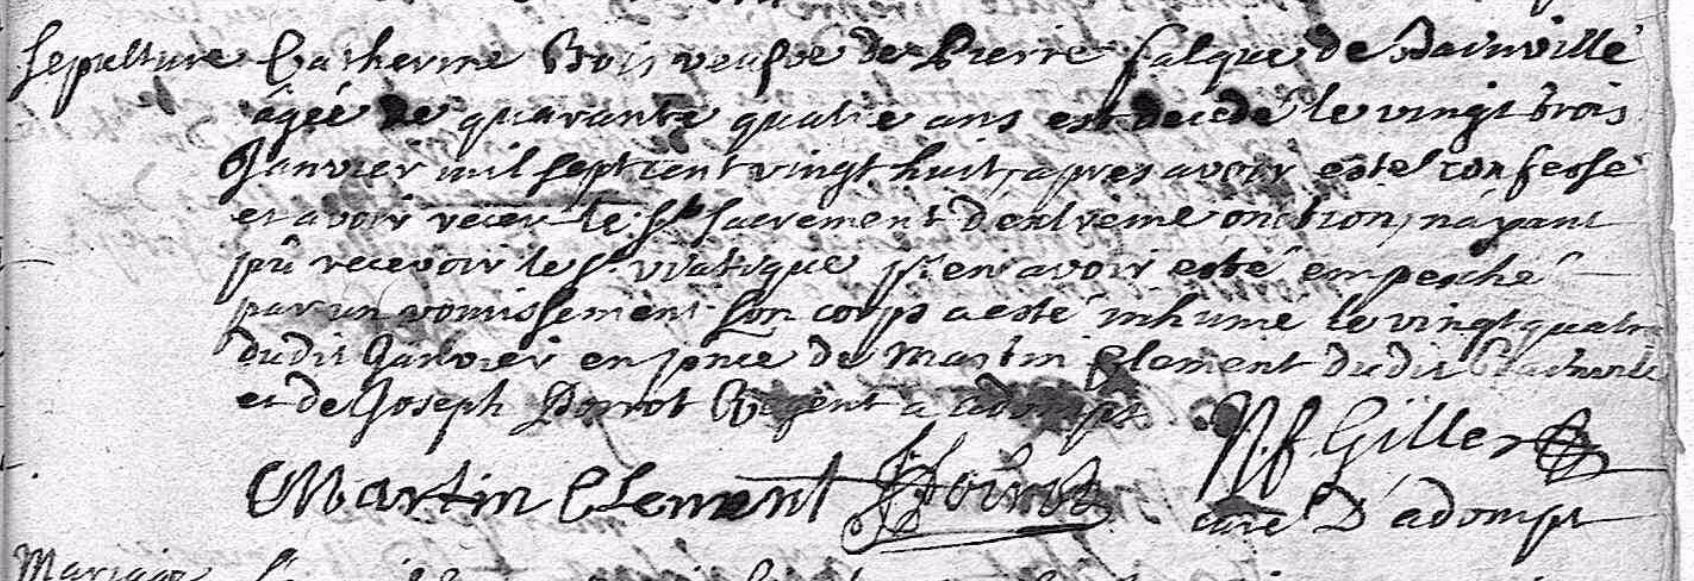 sepulture Catherine Bois veufve de Pierre falque de Bainville
âgée de quarante quatre ans est decedé le vingt trois
Janvier mil sept cent vingt huit, apres avoir esté confessé
et avoir receu le St sacrement d'extreme onction, n'ayant
pû recevoir le St viatique pr en avoir esté empesché
par un vomissement son corps a esté inhumé le vingt quatre
dudit Janvier en pnce de Martin Clement dudit Bainville
et de Joseph Poirot Regent a adompt
N. f. Gillet
Martin Clement J Poirot
curé D'adompt
Mariage